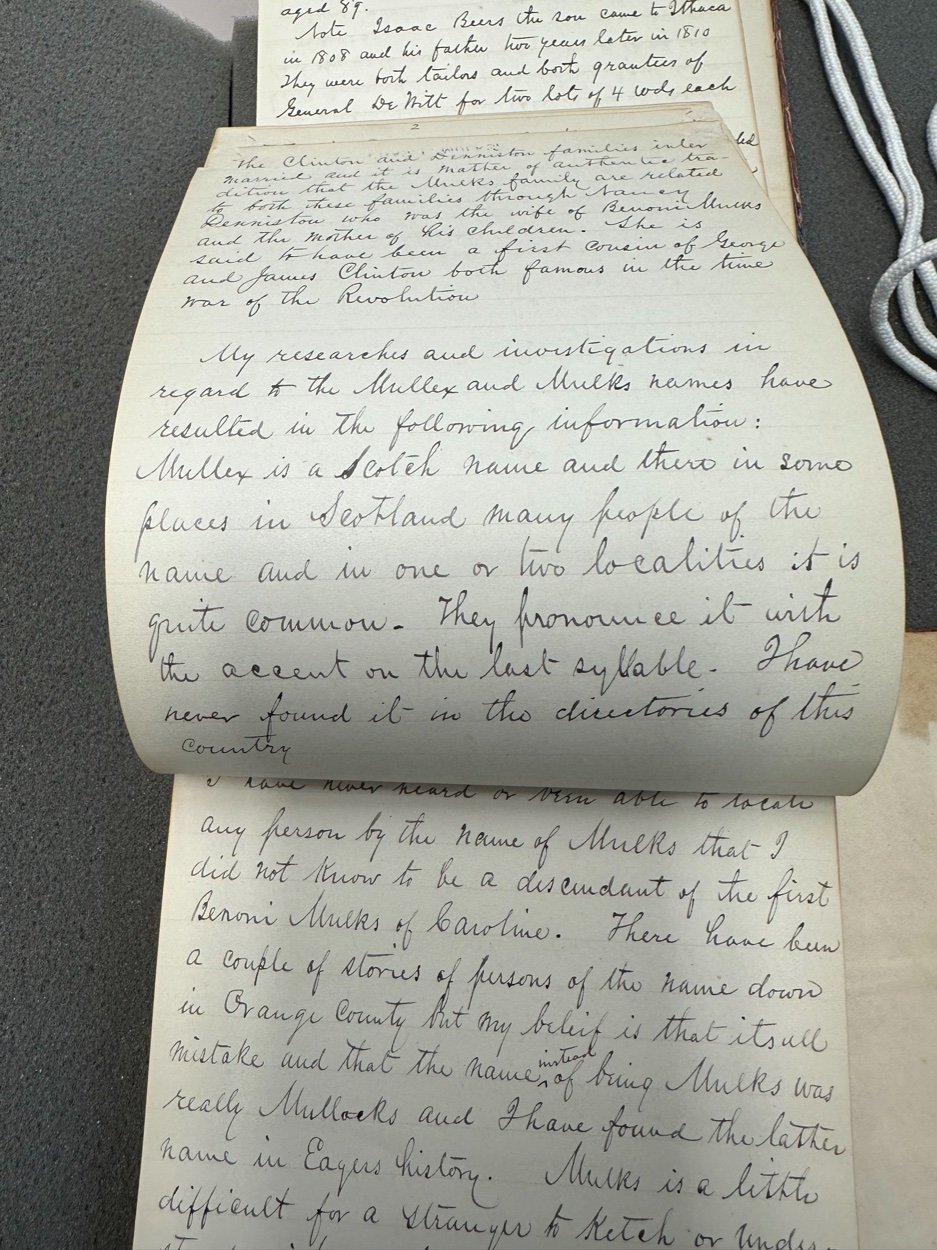 aged 89.
Note Isaac Beers the son came to Ithaca
in 1808 and his father two years later in 1810
They were both tailors and both grantees of
General De Witt for two lots of 4 rods each
2
The Clinton and Denniston families inter
married and it is mather of authentic tra-
dition that the Mulks family are related
to both these families through Nancy
Denniston who was the wife of Benoni Mulks
and the mother of his children. She is
said to have been a first cousin of George
and James Clinton both famous in the time
war of the Revolution
My researches and investigations in
regard to the Mullex and Mulks names have
resulted in the following information:
Mullex is a Scotch name and there in some
places in Scotland many people of the
name and in one or two localities it is
quite common. They pronounce it with
the accent on the last syllable. I have
never found it in the directories of this
country
I have never heard or been able to locate
any person by the name of Mulks that I
did not know to be a descendant of the first
Benoni Mulks of Caroline. There have been
a couple of stories of persons of the name down
in Orange County but my beleif is that its all
mistake and that the name instead of being Mulks was
really Mullocks and I have found the lather
name in Eagers history. Mulks is a little
difficult for a stranger to ketch or under-